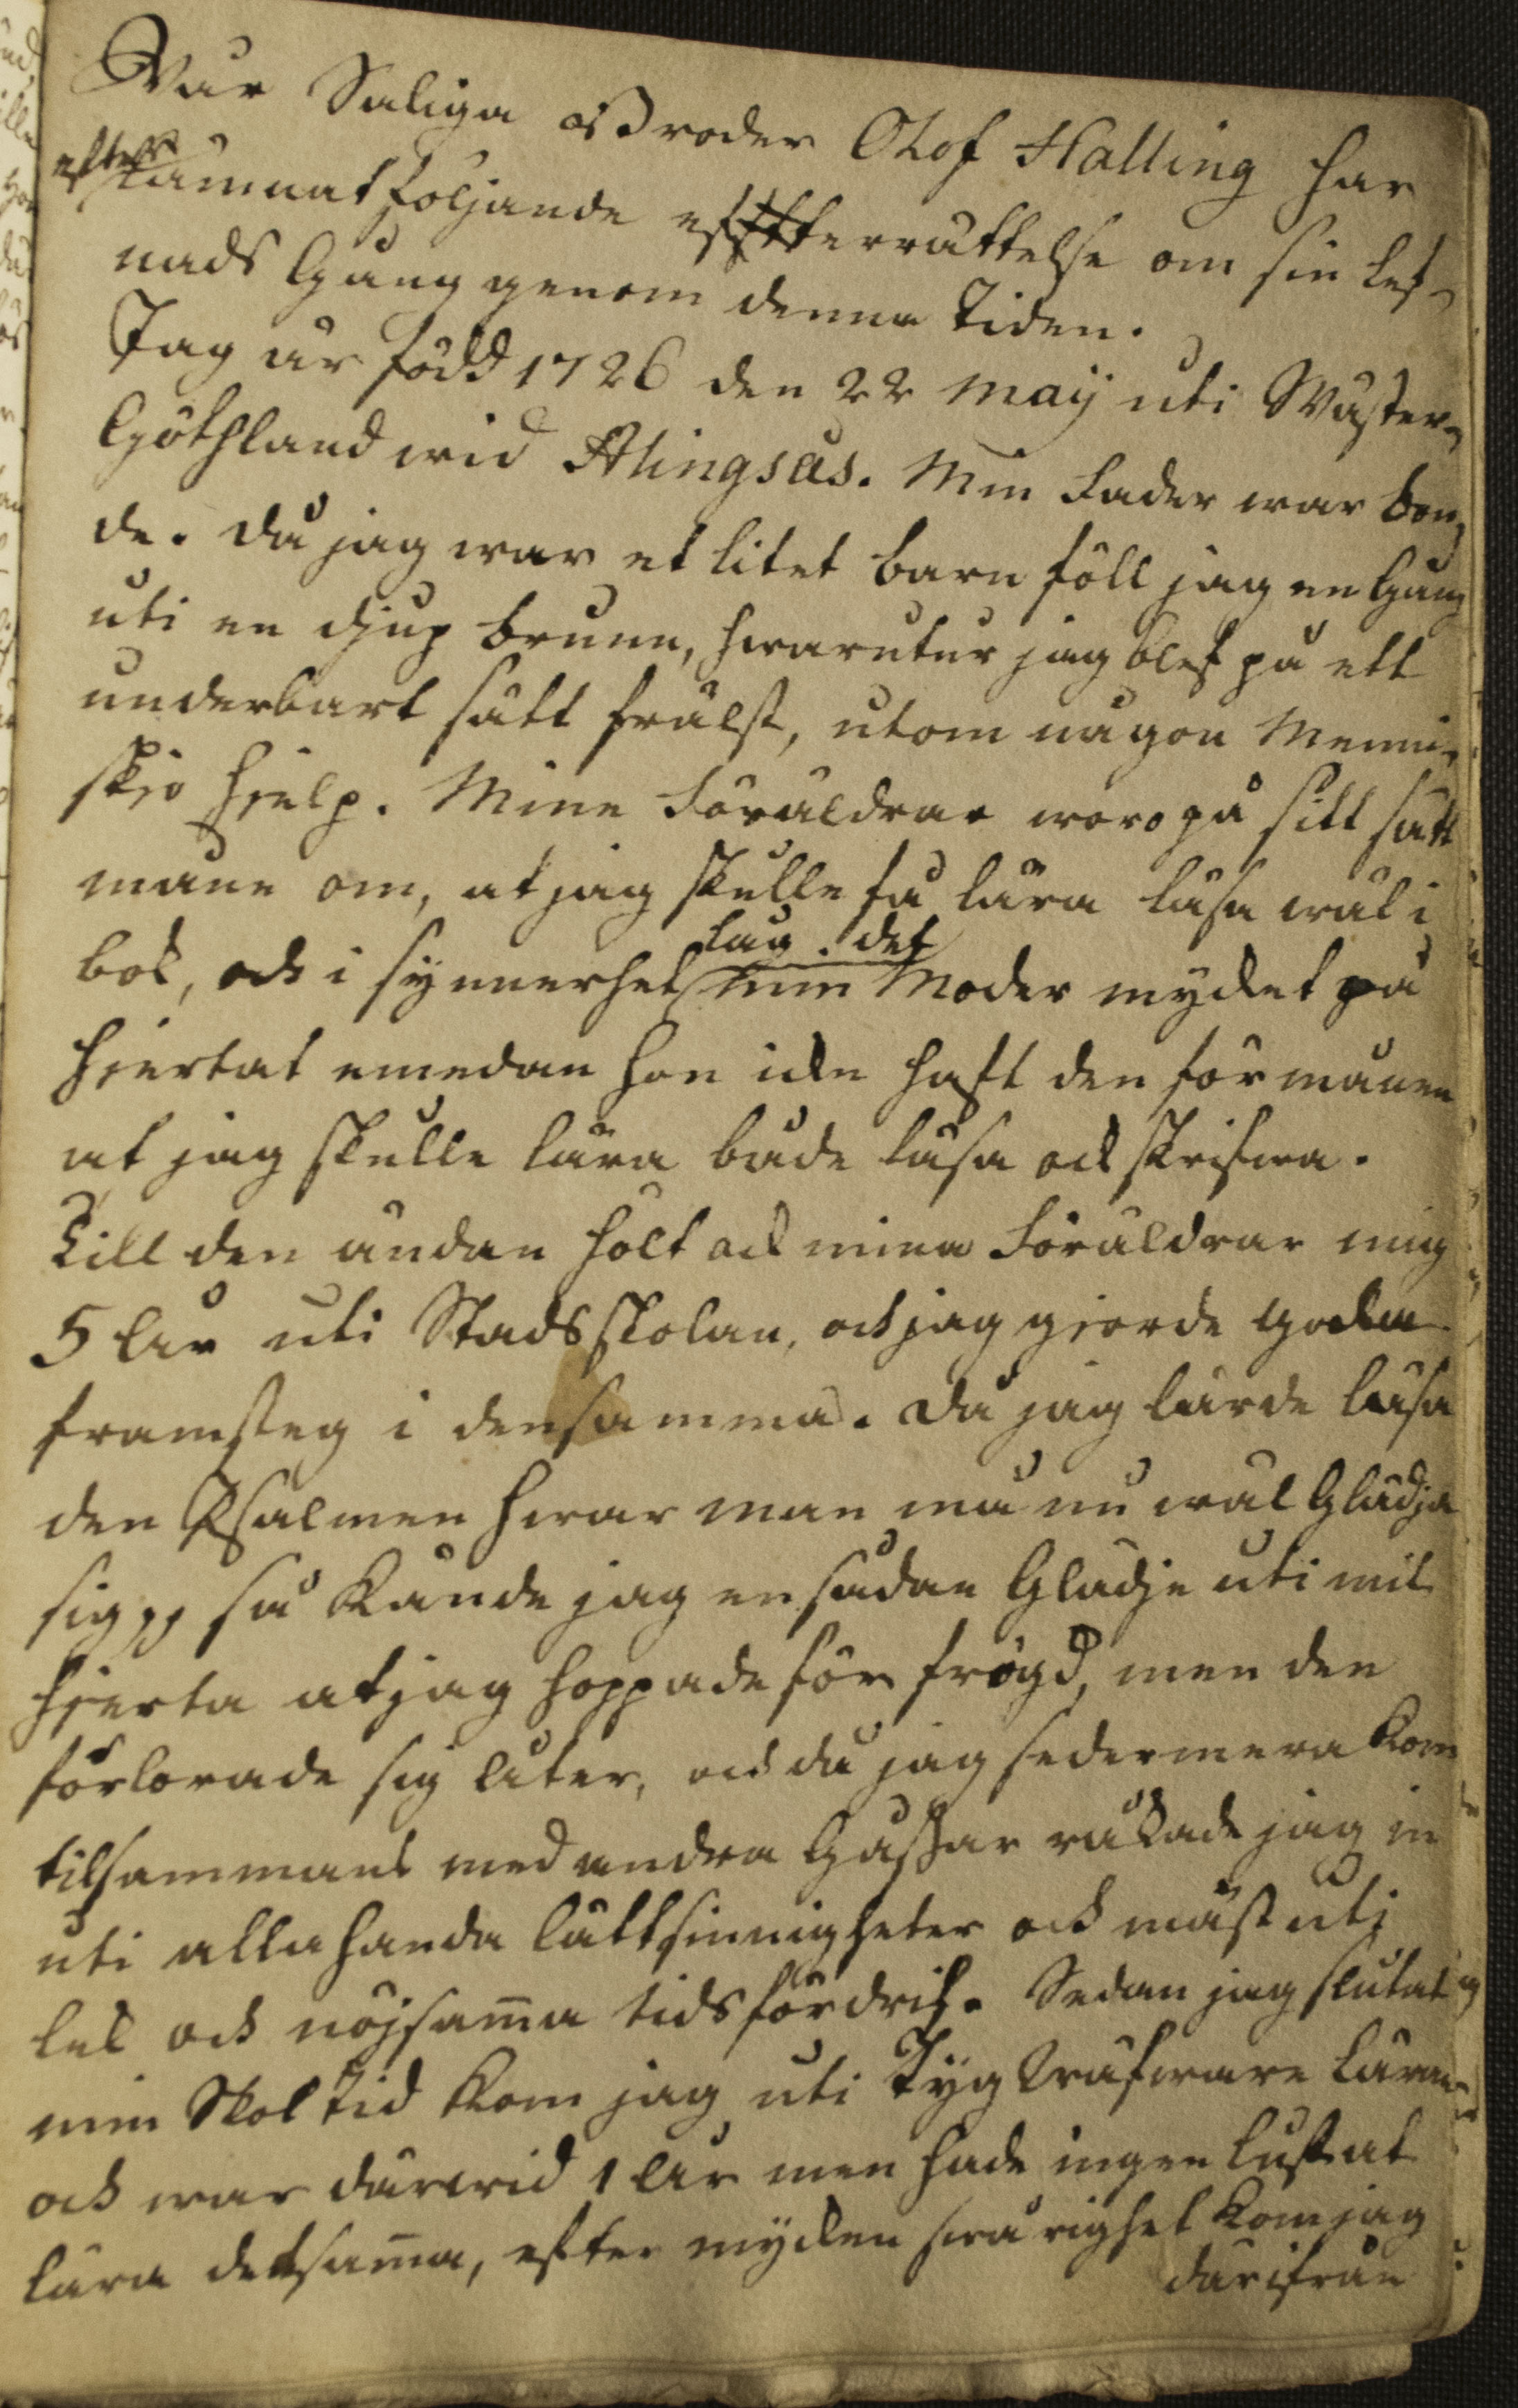 Wår Saliga Broder Olof Halling har
efterlämnat följande efterrättelse om sin lef-
nads Gång genom denna tiden.
Jag är född 1726 den 22 Maÿ uti Wäster-
Göthland wid Alingsås. Min Fader war bon-
de. Då jag war et litet barn föll jag en Gång
uti en djup brunn, hwarutur jag blef på ett
underbart sätt frälst, utom någon Menni-
skjo hjelp. Mine Föräldrar woro på sitt sätt
måne om, at jag skulle få lära läsa wäl i
bok, och i synnerhet låg det min Moder mycket på
hjertat emedan hon icke haft den förmånen
at jag skulle lära både läsa och skrifwa.
Till den ändan holt ock mina Föräldrar mig
5 År uti Stads skolan, och jag gjorde goda
framsteg i densamma. Då jag lärde läsa
den Psalmen hwar man må nu wäl Glädja
sig pp så kände jag en sådan Glädje uti mit
hjerta at jag hoppade för frögd, men den
förlorade sig åter, och då jag sedermera kom
tilsammans med andra Gåssar råkade jag in
uti allahanda lättsinnigheter och mäst uti
lek och nöjsam̅a tidsfördrif. Sedan jag slutat
min Skol tid kom jag uti Tyg Wäfware Lära
och war därwid 1 År men hade ingen lust at
lära detsam̅a, efter mycken swårighet kom jag
därifrån